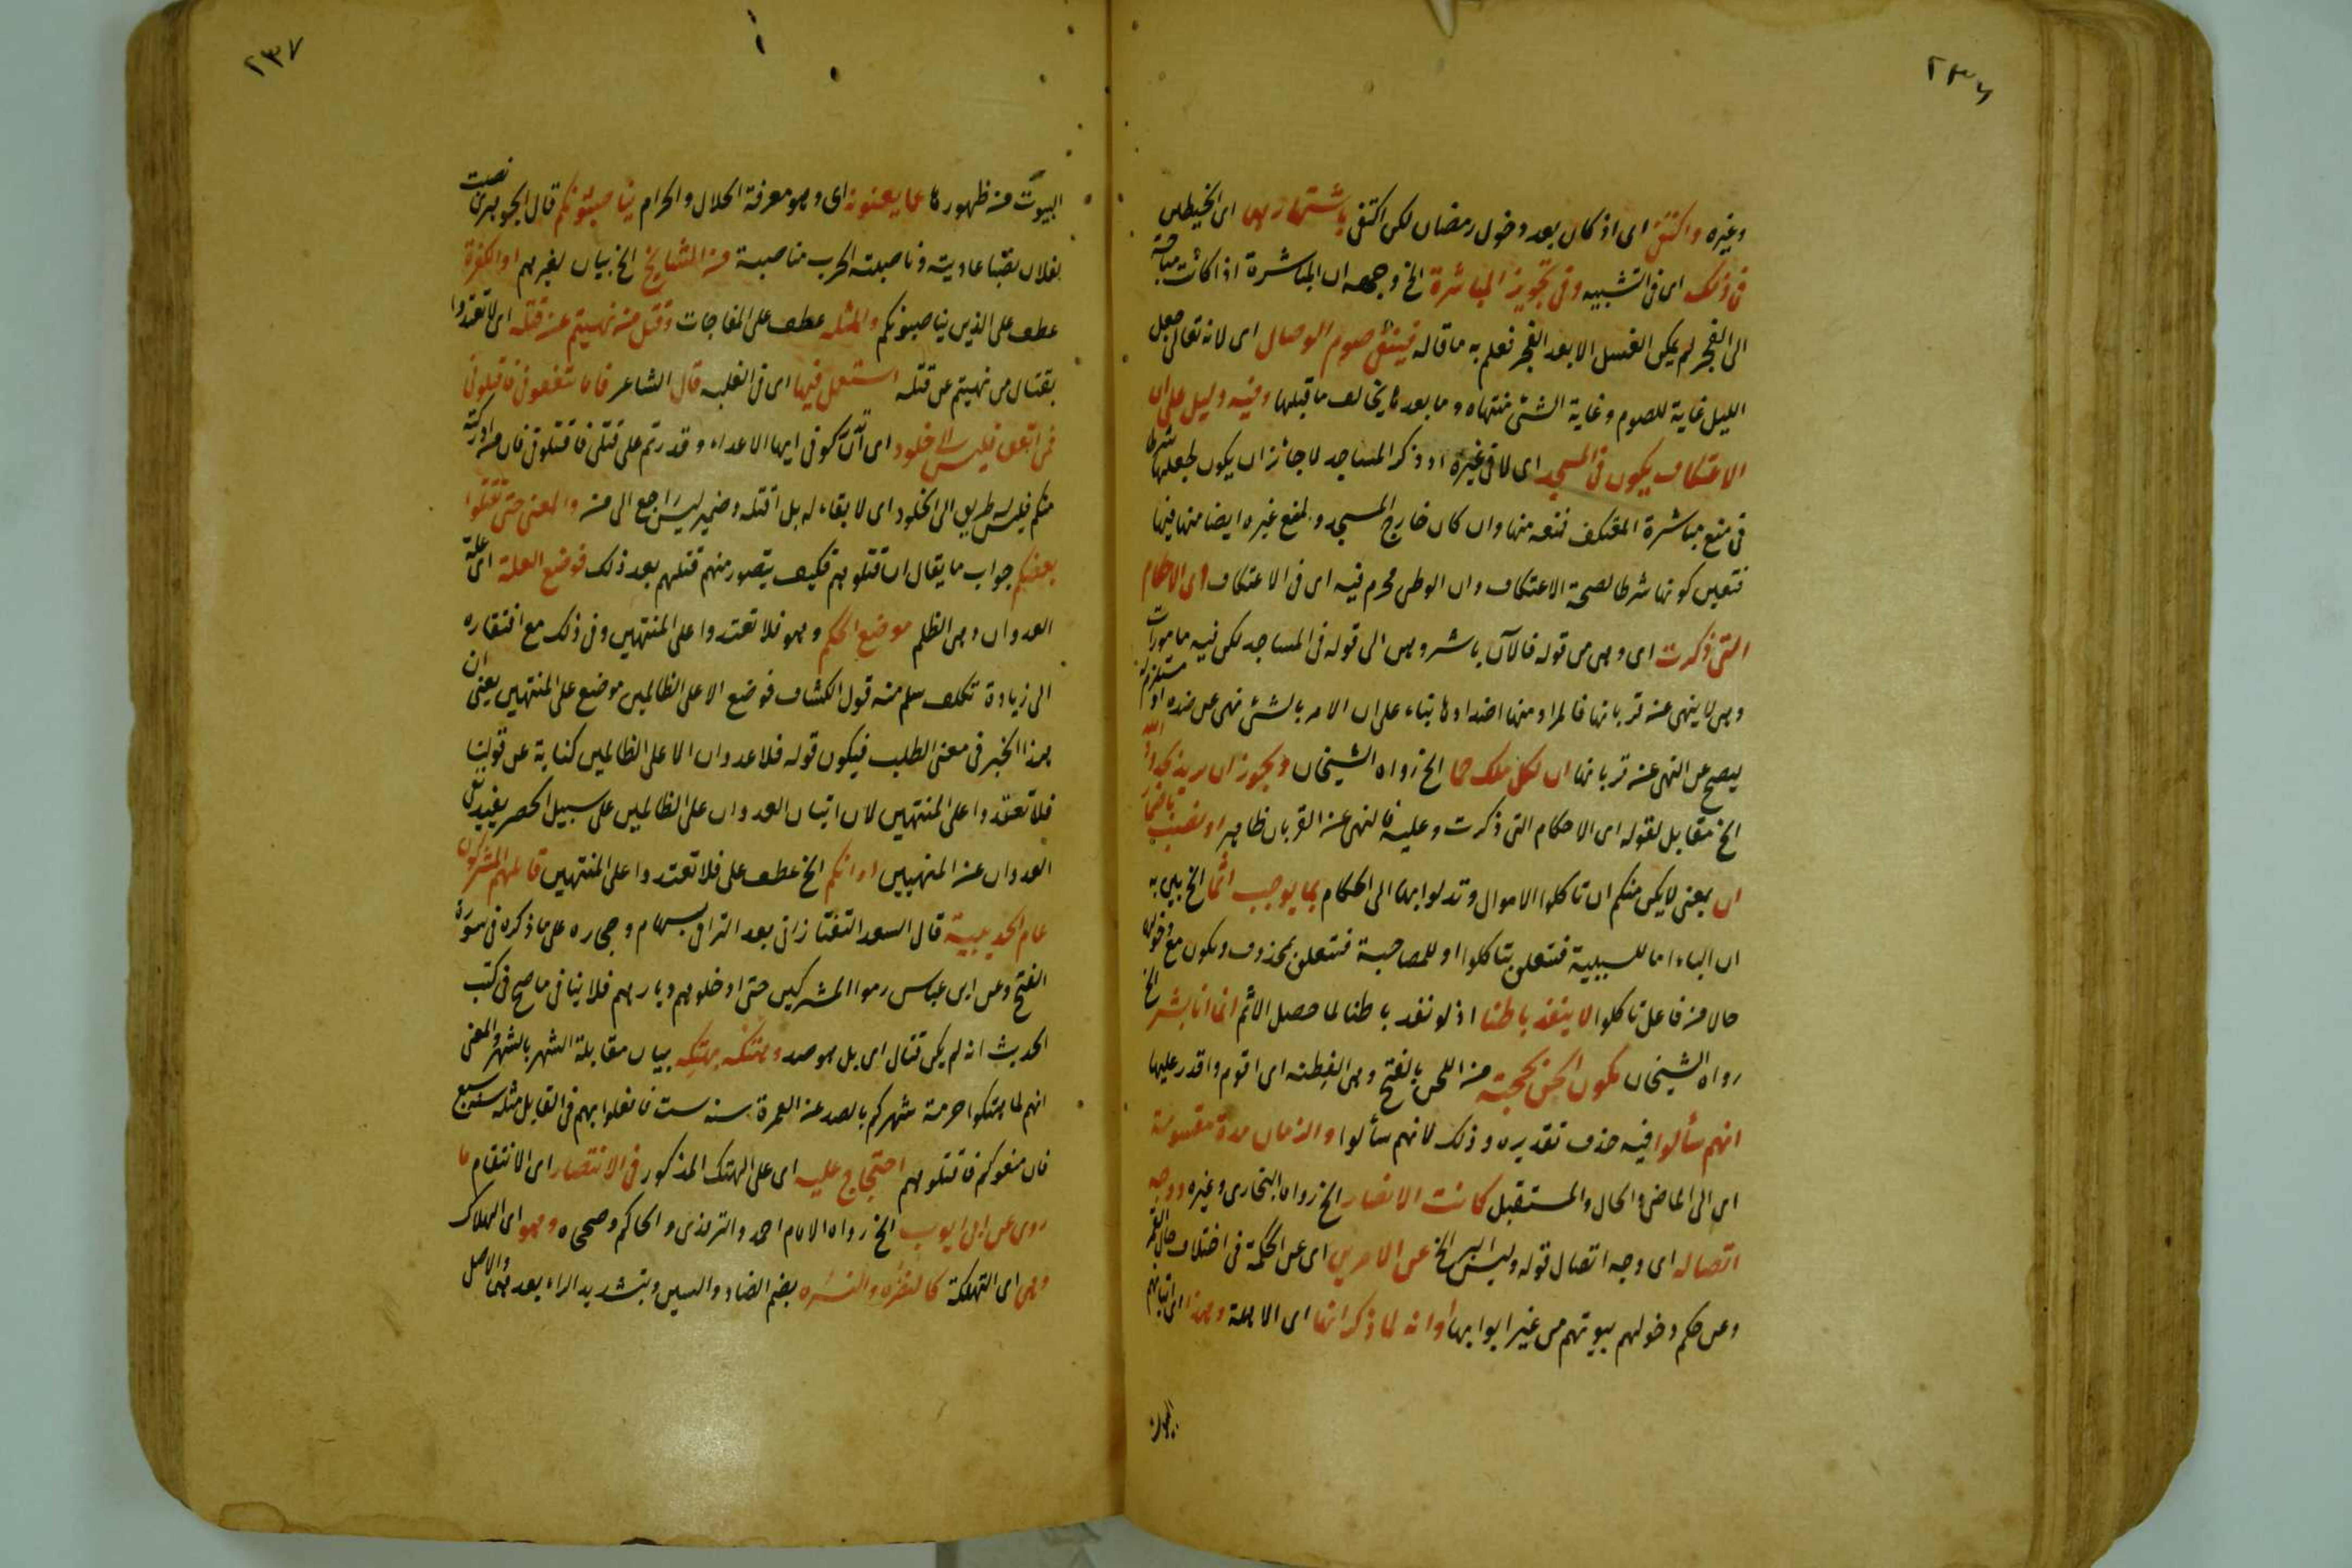 ٢٣٦
وغيره واكتفى اى اذ كان بعد دخول رمضان لكن اكتفى باشتهارهما اى الخيطان
فى ذلك اى فى التشبيه وفى تجويز المباشرة الخ وجهه ان المباشرة اذا كانت مباحة
الى الفجر لم يكن الغسل الا بعد الفجر فعلم به ما قاله فينتفى صوم الوصال اى لانه تعالى جعل
الليل غاية للصوم وغاية الشئ منتهاه وما بعدها يخالف ما قبلها وفيه دليل على ان
الاعتكاف يكون فى المسجد اى لا فى غيره اذ ذكر المساجد لا جائز ان يكون لجعلها شرطا
فى منع مباشرة المعتكف لمنعه منها وان كان خارج المسجد ولمنع غيره ايضا منها فيها
فتعين كونها شرطا لصحة الاعتكاف وان الوطئ محرم فيه اى فى الاعتكاف اى الاحكام
التى ذكرت اى وهى من قوله فالآن باشروهن الى قوله فى المساجد لكن فيه مامورات
وهى لا ينهى عن قربانها فالمراد منها اضدادها بناء على ان الامر بالشئ نهى عن ضده او مستلزم له
ليصح عن النهى عن قربانها ان لكل ملك حمى الخ رواه الشيخان ويجوز ان يريد بحدود الله
الخ مقابل لقوله اى الاحكام التى ذكرت وعليه فالنهى عن القربان ظاهر او نصب باضمار
ان يعنى لا يكن منكم ان تاكلوا الاموال وتدلوا بها الى الحكام بما يوجب اثما الخ بين به
ان الباء اما للسببية فتتعلق بتاكلوا او للمصاحبة فتتعلق بمحذوف ويكون مع مدخولها
حالا من فاعل تاكلوا لا ينفذ باطنا اذ لو نفذ باطنا لما حصل الاثم انما انا بشر الخ
رواه الشيخان يكون الحن بحجته من اللحن بالفتح وهى الفطنة اى اقوم واقدر عليها
انهم سألوا فيه حذف تقديره وذلك لانهم سألوا والزمان مدة مقسومة
اى الى الماضى والحال والمستقبل كانت الانصار الخ رواه البخارى وغيره ووجه
اتصاله اى وجه اتصال قوله وليس البر الخ عن الامرين اى عن الحكمة فى اختلاف حال القمر
وعن حكم دخولهم بيوتهم من غير ابوابها او انه لما ذكر انها اى الاهلة وهذا اى اتيانهم
البيوت
٢٣٧
البيوت من ظهورها عما يعنونه اى وهو معرفة الحلال والحرام يناصبونكم قال الجوهرى نصبت
لفلان نصبا عاديته وناصبته الحرب مناصبة من المشايخ الخ بيان لغيرهم او الكفرة
عطف على الذين يناصبونكم والمثلة عطف على المفاجات وقتل من نهيتم عن قتله اى لا تعتدوا
بقتال من نهيتم عن قتله استعمل فيها اى فى الغلبة قال الشاعر فاما تثقفونى فاقتلونى
فمن اثقف فليس الى خلود اى ان تدركونى ايها الاعداء وقدرتم على قتلى فاقتلونى فان من ادركته
منكم فليس له طريق الى الخلود اى لا بقاء له بل اقتله وضمير ليس راجع الى من والمعنى حتى يقتلوا
بعضكم جواب ما يقال ان قتلوهم فكيف يتصور منهم قتلهم بعد ذلك فوضع العلة اى علة
العدوان وهى الظلم موضع الحكم وهو فلا تعتدوا على المنتهين وفى ذلك مع افتقاره
الى زيادة تكلف سلم منه قول الكشاف فوضع الا على الظالمين موضع على المنتهين يعنى ان
هذا الخبر فى معنى الطلب فيكون قوله فلا عدوان الا على الظالمين كناية عن قولنا
فلا تعتدوا على المنتهين لان اتيان العدوان على الظالمين على سبيل الحصر يفيد نفى
العدوان عن المنتهين او انكم الخ عطف على فلا تعتدوا على المنتهين قاتلهم المشركون
عام الحديبية قال السعد التفتازانى بعد الترامى بسهام وحجاره على ما ذكره فى سورة
الفتح وعن ابن عباس رموا المشركين حتى ادخلوهم ديارهم فلا ينافى ما صح فى كتب
الحديث انه لم يكن قتال اى بل هو صد وهتكه بهتكه بيان مقابلة الشهر بالشهر والمعنى
انهم لما هتكوا حرمة شهركم بالصد عن العمرة سنة ست فافعلوا بهم فى القابل مثله سنة سبع
فان منعوكم فاقتلوهم احتجاج عليه اى على الهتك المذكور فى الانتصار اى الانتقام ما
روى عن ابى ايوب الخ رواه الامام احمد والترمذى والحاكم وصححاه وهو اى الهلاك
وهى اى التهلكة كالتضره والتسره بضم الضاد والسين وبتشديد الراء بعدهما والاصل